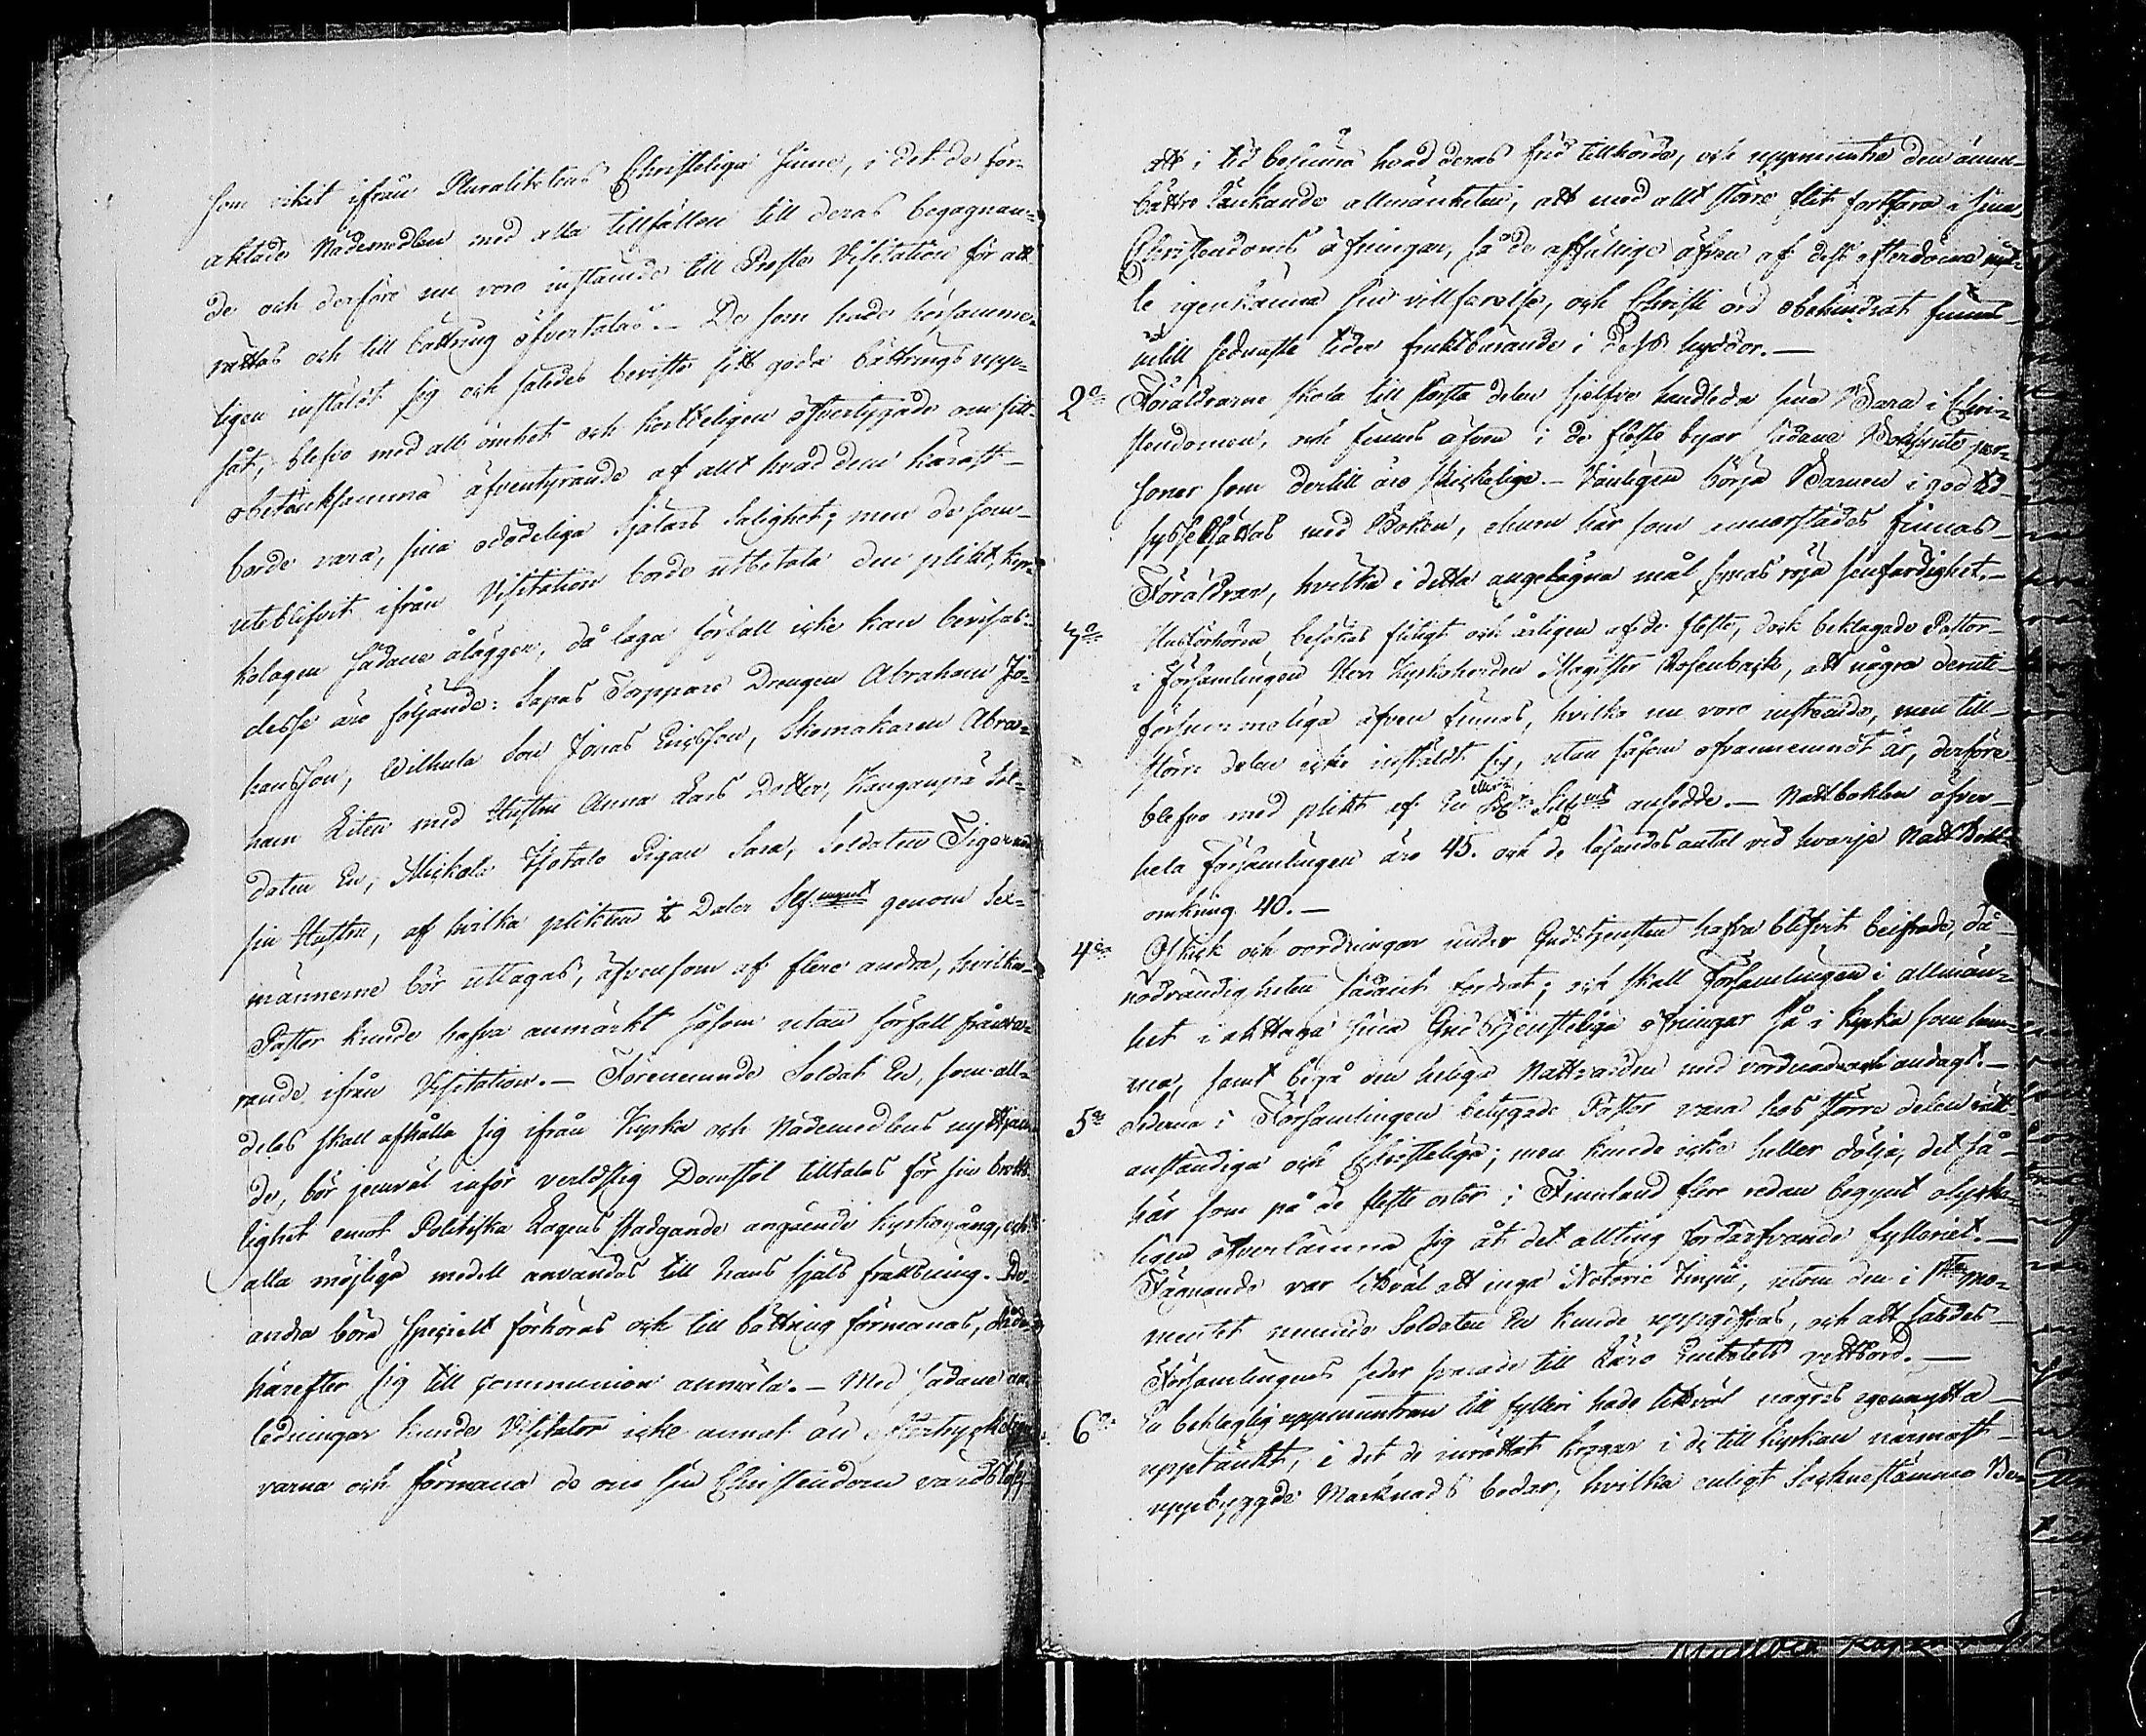 som vikit ifrån Pluralitetens Christeliga sinne, i det de för-
aktade Nådemedlen med alla tillfällen till deras begagnan-
de och derföre nu voro instämde till Probste Visitation för att
rättas och till bättring öfvertalas. – De som hade hörsamme-
ligen instäldt sig och således beviste sitt goda bättrings upp-
såt, blefvo med all ömhet och korteligen öfvertygade om sitt
obetänksamma äfventyrande af allt hvad dem kärast
borde vara, sina odödeliga Själars Salighet; men de som
uteblifvit ifrån Visitation borde utbetala den plikt, kyr-
kolagen sådane ålägger, då laga förfall icke kan bevisas.
desse äro följande: Sapas Torppare Drengen Abraham Jo-
hansson, Wilhula Son Jonas Ericsson, Skomakaren Abra-
ham Liten med Hustru Anna Lars Dotter, Kanganpä Sol-
daten En, Mickola Hotalo Pigan Sara, Soldaten Tiger med
sin Hustru, af hvilka plikten Daler Slfmynt genom Sex-
männerne bör uttagas, äfvensom af flere andra, hvilka
Pastor kunde hafva anmärkt såsom utan förfall frånva-
rande ifrån Visitation. – Förenemnde Soldat En, som all-
deles skall afhålla sig ifrån Kyrka och Nådemedlens nyttjan-
de, bör jemväl inför verldslig Domstol tilltalas för sin brotts-
lighet emot Politiska Lagens stadgande angående kyrkogång, och
alla möjliga medell användas till hans själs frälsning. De
andra böra speciellt förhöras och till bättring förmanas, då de
härefter sig till communion anmäla. – Med sådane an-
ledningar kunde Visitator icke annat än eftertryckeligen
varna och förmana de om sin Christendom vårdslöse
att i tid besinna hvad deras frid tillhörde, och uppmuntra den ännu
bättre tänkande allmänheten, att med allt större flit fortfara i sina
Christendoms öfningar, så de affällige äfven af dess efterdöme måt-
te igenkänna sin villfarelse, och Christi ord obehindrat finnas
intill sednaste tider fruktbärande i dess hyddor. –
2o Föräldrarne skola till största delen sjelfve handleda sina Barn i Chri-
stendomen, och finnes äfven i de fleste byar sådane Bokkunte per-
soner som dertill äro skickelige. – Vanligen börja Barnen i god tid
sysselsättas med Boken, ehuru här som annorstädes finnas
Föräldrar, hvilka i detta angelägna mål synas röja senfärdighet. –
3o Husförhören besökas flitigt och årligen af de fleste, dock beklagade Pastor
i Församlingen Herr Kyrkoherden Magister Rosenback, att några deruti
försummeliga äfven finnas, hvilka nu voro instämde, men till
större delen icke instäldt sig, utan såsom ofvannemndt är, derföre
blefvo med plikt af En Slfmt ansedde. – Nattboklen öfver
hela Församlingen äro 45. och de läsandes antal vid hvarje Natt
omkring 40. –
4o Oskick och oordningar under Gudstjensten hafva blifvit beifrade, då
nödvändigheten sådant fordrat; och skall Församlingen i allmän-
het i akttaga sina Gudstjensteliga öfningar så i kyrka som hem-
ma, samt begå den heliga Nattvarden med vördnad och andagt. –
5o Sederna i Församlingen betygade Pastor vara hos större delen rätt
anständiga och Christeliga; men kunde icke heller dölja, det så
här som på de fleste orter i Finnland flere redan begynt olycke-
ligen öfverlämna sig åt det allting förderfvande fylleriet. –
Fägnande var likväl att inga Notorie, utom den i 1sta mo-
mentet nemnde Soldaten En kunde uppgifvas, och att således
Församlingens seder svarade till Läro Embetets
6o En beklaglig uppmuntran till fylleri hade likväl någras egennytta
upptänkt, i det de inrättat krogar i de till kyrkan närmast
uppbyggde Marknads bodar, hvilka enligt Socknestämmo Be-